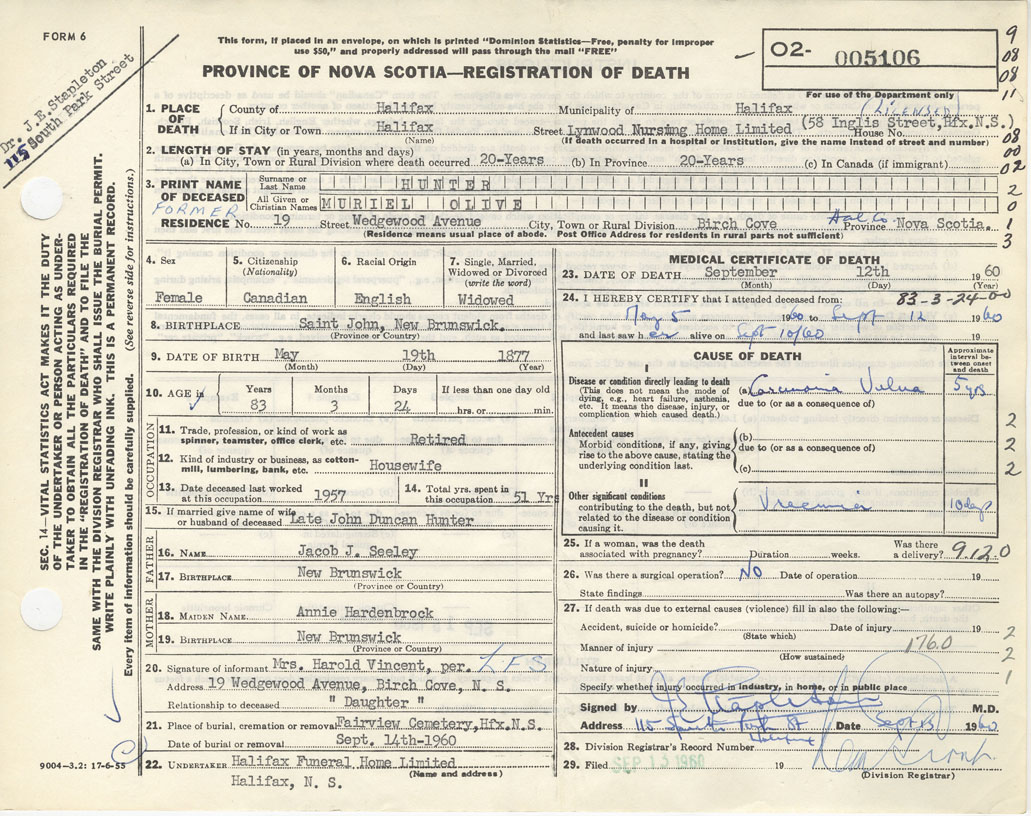 FORM 6
This form, if placed in an envelope, on which is printed "Dominion Statistics—Free, penalty for improper
use $50," and properly addressed will pass through the mail "FREE"
PROVINCE OF NOVA SCOTIA—REGISTRATION OF DEATH
O2- 005106
For use of the Department only
9
08
08
11
08
00
02
2
0
1
3
Dr. J.E. Stapleton
115 South Park Street
1. PLACE OF DEATH
County of Halifax Municipality of Halifax (LICENSED)
If in City or Town Halifax Street Lynwood Nursing Home Limited (58 Inglis Street, Hfx, N.S.) House No.
(Name) (If death occurred in a hospital or institution, give the name instead of street and number)
2. LENGTH OF STAY (in years, months and days)
(a) In City, Town or Rural Division where death occurred 20-Years (b) In Province 20-Years (c) In Canada (if immigrant)
3. PRINT NAME OF DECEASED
Surname or Last Name HUNTER
All Given or Christian Names MURIEL OLIVE
FORMER
RESIDENCE No. 19 Street Wedgewood Avenue City, Town or Rural Division Birch Cove Hal Co Province Nova Scotia.
(Residence means usual place of abode. Post Office Address for residents in rural parts not sufficient)
4. Sex
Female
5. Citizenship
(Nationality)
Canadian
6. Racial Origin
English
7. Single, Married,
Widowed or Divorced
(write the word)
Widowed
8. BIRTHPLACE Saint John, New Brunswick.
(Province or Country)
9. DATE OF BIRTH May 19th 1877
(Month) (Day) (Year)
10. AGE in
Years Months Days If less than one day old
83 3 24 hrs. or min.
OCCUPATION
11. Trade, profession, or kind of work as
spinner, teamster, office clerk, etc. Retired
12. Kind of industry or business, as cotton-
mill, lumbering, bank, etc. Housewife
13. Date deceased last worked
at this occupation 1957
14. Total yrs. spent in
this occupation 51 Yrs
15. If married give name of wife
or husband of deceased Late John Duncan Hunter
FATHER
16. NAME Jacob J. Seeley
17. BIRTHPLACE New Brunswick
(Province or Country)
MOTHER
18. MAIDEN NAME Annie Hardenbrock
19. BIRTHPLACE New Brunswick
(Province or Country)
20. Signature of informant Mrs. Harold Vincent, per.
Address 19 Wedgewood Avenue, Birch Cove, N. S.
Relationship to deceased " Daughter "
21. Place of burial, cremation or removal Fairview Cemetery, Hfx.N.S.
Date of burial or removal Sept. 14th-1960
22. UNDERTAKER Halifax Funeral Home Limited
(Name and address)
Halifax, N. S.
9004—3.2: 17-6-55
SEC. 14 VITAL STATISTICS ACT MAKES IT THE DUTY
OF THE UNDERTAKER OR PERSON ACTING AS UNDER-
TAKER TO OBTAIN ALL THE PARTICULARS REQUIRED
IN THE "REGISTRATION OF DEATH" AND TO FILE THE
SAME WITH THE DIVISION REGISTRAR WHO SHALL ISSUE THE BURIAL PERMIT.
WRITE PLAINLY WITH UNFADING INK. THIS IS A PERMANENT RECORD.
Every item of information should be carefully supplied. (See reverse side for instructions.)
MEDICAL CERTIFICATE OF DEATH
23. DATE OF DEATH September 12th 1960
(Month) (Day) (Year)
24. I HEREBY CERTIFY that I attended deceased from: 83-3-24-00
May 5 1960 to Sept 12 1960
and last saw her alive on Sept 10/60
CAUSE OF DEATH
Approximate
interval be-
tween onset
and death
I
Disease or condition directly leading to death
(This does not mean the mode of
dying, e.g., heart failure, asthenia,
etc. It means the disease, injury, or
complication which caused death.)
(a) Carcinoma Vulva 5 yrs
due to (or as a consequence of)
Antecedent causes
Morbid conditions, if any, giving
rise to the above cause, stating the
underlying condition last.
(b)
due to (or as a consequence of)
(c)
2
2
2
II
Other significant conditions
contributing to the death, but not
related to the disease or condition
causing it.
Uraemia 10 days
25. If a woman, was the death
associated with pregnancy? Duration weeks. Was there
a delivery? 9.12.0
26. Was there a surgical operation? NO Date of operation 19
State findings Was there an autopsy?
27. If death was due to external causes (violence) fill in also the following:—
Accident, suicide or homicide? Date of injury 19
(State which)
Manner of injury 176.0
(How sustained)
Nature of injury
Specify whether injury occurred in industry, in home, or in public place
2
2
1
Signed by J E Stapleton M.D.
Address 115 South Park St Date Sept 13 1960
Halifax
28. Division Registrar's Record Number
29. Filed SEP 13 1960 19
(Division Registrar)